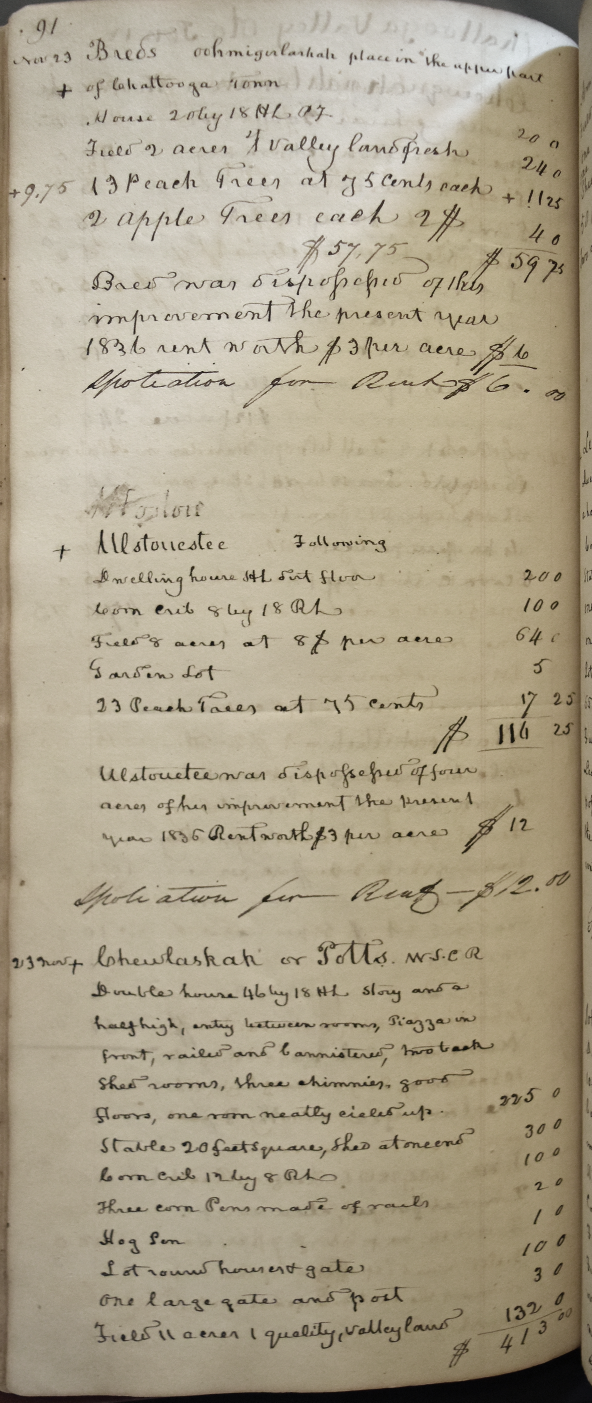 91
Nov 23 Breds oohmigerlaskah place in the upper part
+ of Chattooga Town
House 20 by 18 HL 20 0
Field 2 acres valley land fresh 24 0
+ 9.75 13 Peach Trees at 75 Cents each + 11 25
2 apple Trees each 2 $ 4 0
$ 57.75 $ 59 75
Bred was dispossessed of this
improvement the present year
1836 rent worth $ 3 per acre $ 6
Spoliation for Rent $ 6.00
+ Ulstouestee Following
Dwelling house HL dirt floor 20 0
Corn Crib 8 by 18 RL 10 0
Field 8 acres at 8 $ per acre 64 0
Garden Lot 5
23 Peach Trees at 75 cents 17 25
$ 116 25
Ulstouetee was dispossessed of four
acres of his improvement the present
year 1836 Rent worth $3 per acre $ 12
Spoliation for Rent — $12.00
23 Nov + Chewlaskah or Potts. W.S.C R
Double house 46 by 18 HL Story and a
half high, entry between rooms, Piazza in
front, railed and bannistered, two back
Shed rooms, three chimnies, good
floors, one room neatly cieled up. 225 0
Stable 20 feet square, Shed at one end 30 0
Corn Crib 12 by 8 RL 10 0
Three corn Pens made of rails 2 0
Hog Pen 1 0
Lot round houses & gate 10 0
One large gate and post 3 0
Field 11 acres 1 quality, valley land 132 0
$ 413 00